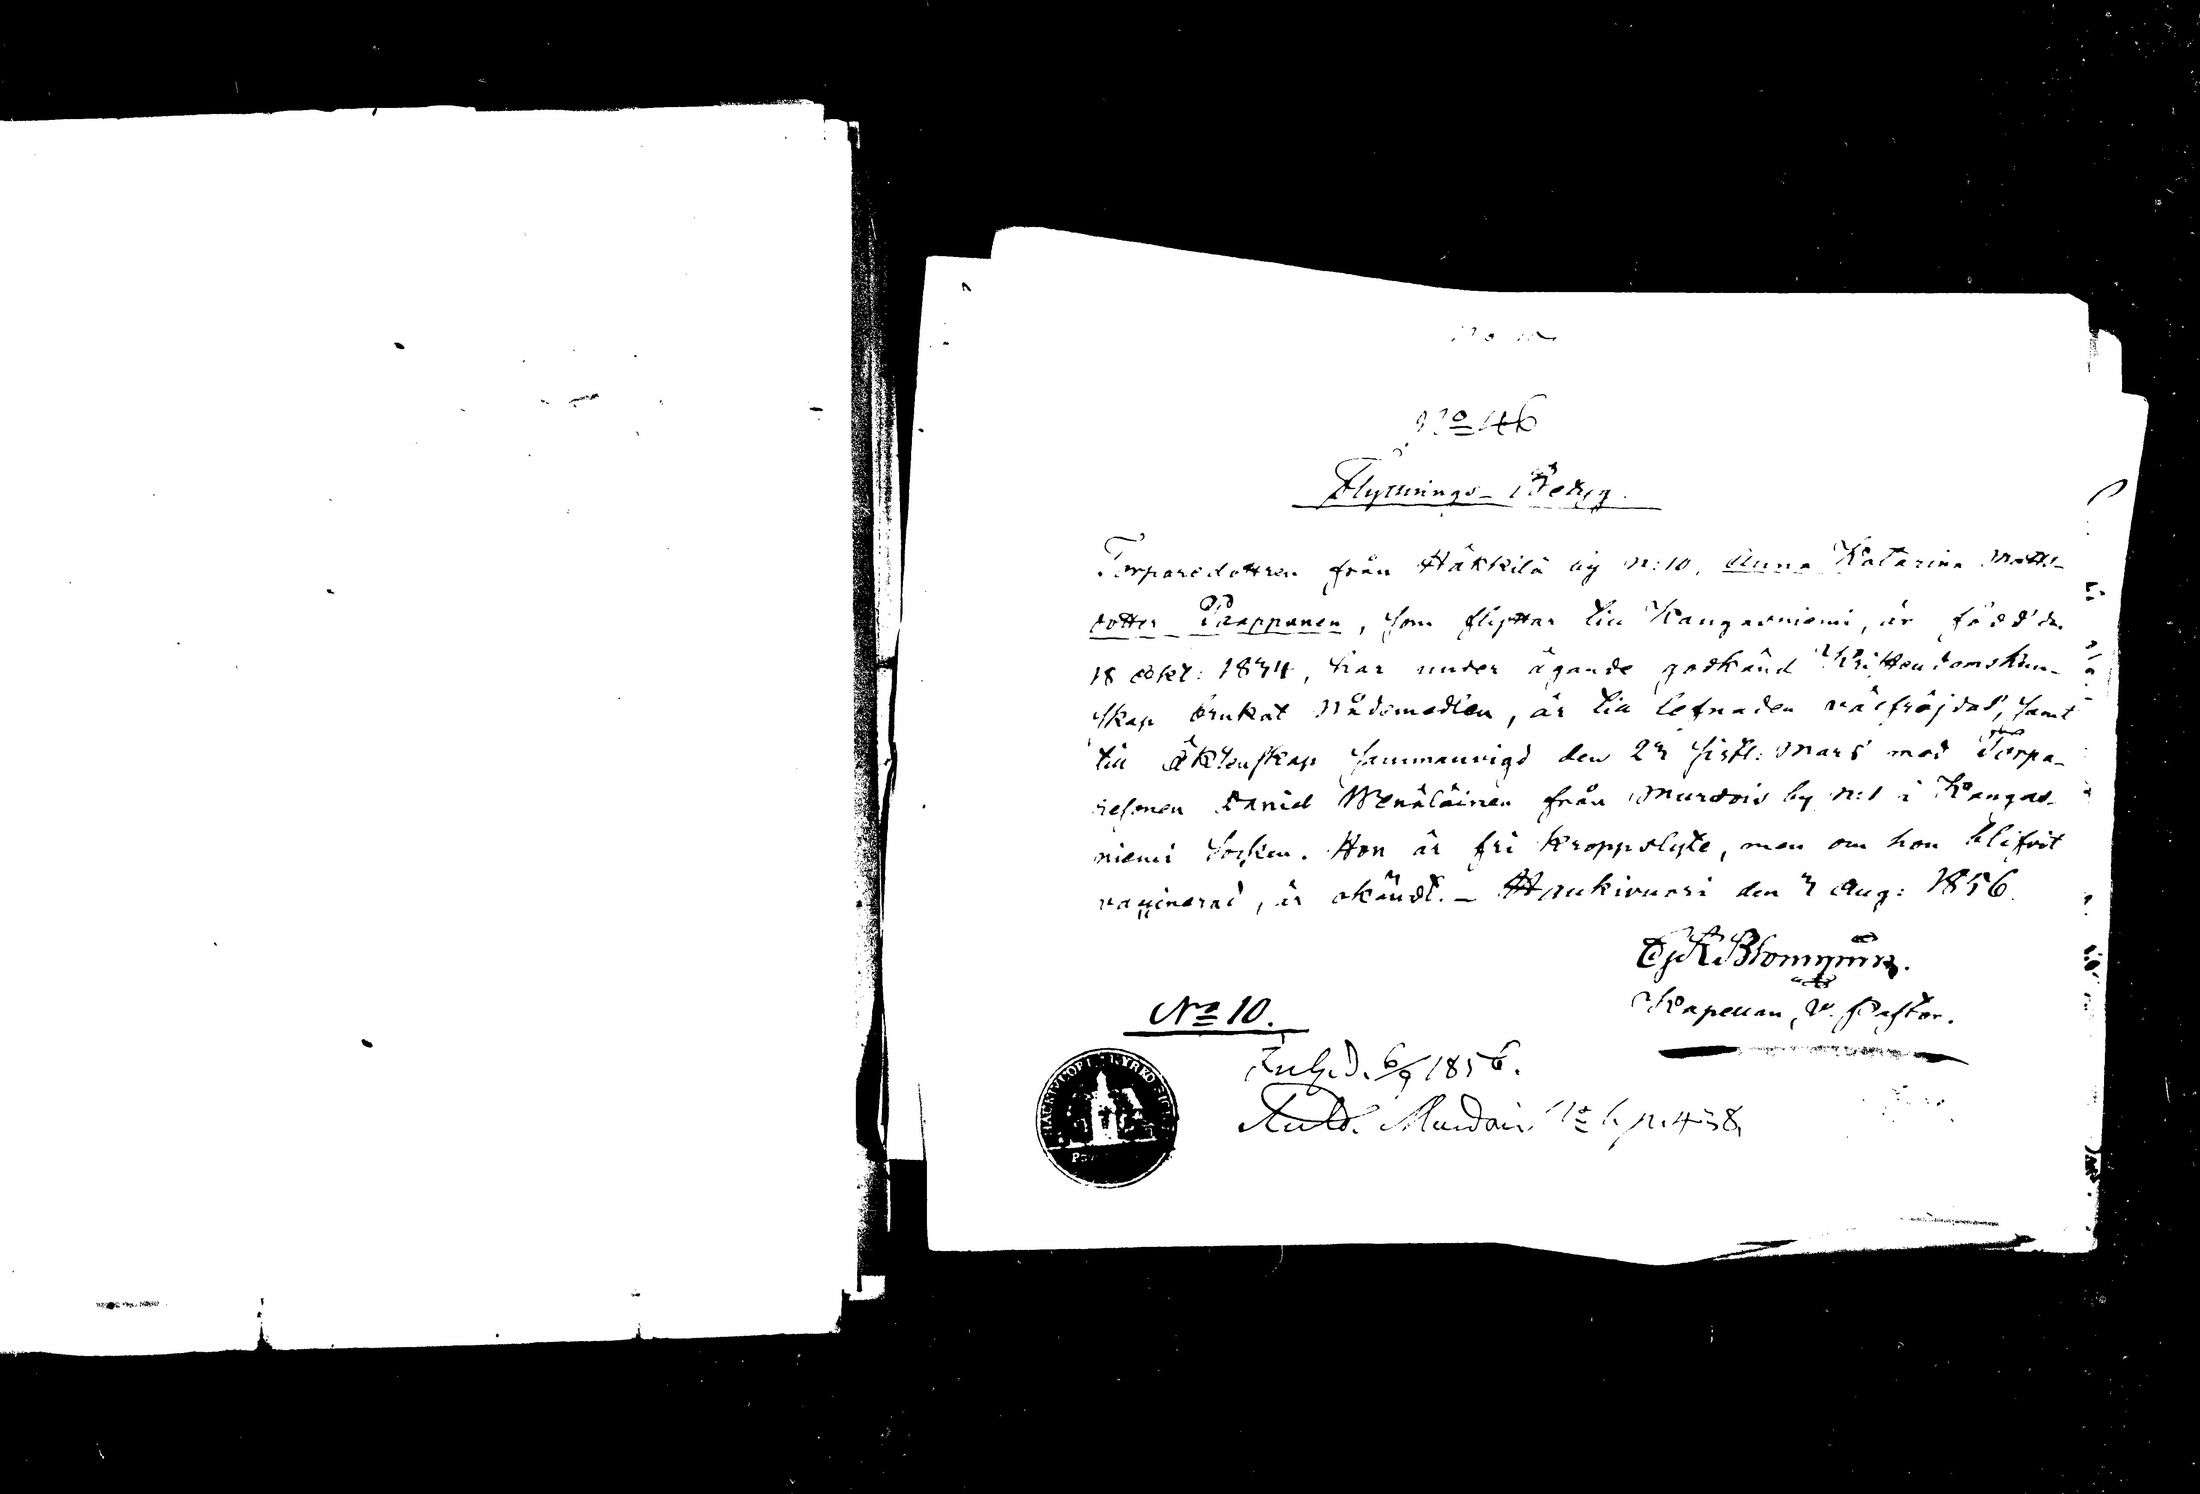 No 146
Flyttnings-Betyg.
Torparedottren från Häkkilä by N:10, Anna Katarina Matts-
dotter Paappanen, som flyttar till Kangasniemi, är född d.
18 Okt: 1834, har under ägande godkänd Kristendomskun-
skap brukat Nådemedlen, är till lefnaden välfräjdad, samt
till Äktenskap sammanvigd den 23 sistl: Mars med Torpa-
resonen Daniel Wenäläinen från Murdois by N:1 i Kangas-
niemi Socken. Hon är fri kroppslyte, men om hon blifvit
vaccinerad, är okändt. – Haukivuori den 3 Aug: 1856.
Kapellan, v. Pastor.
No 10.
Inlh.d. 6/9 1856.
Murdois No 1. p. 438.